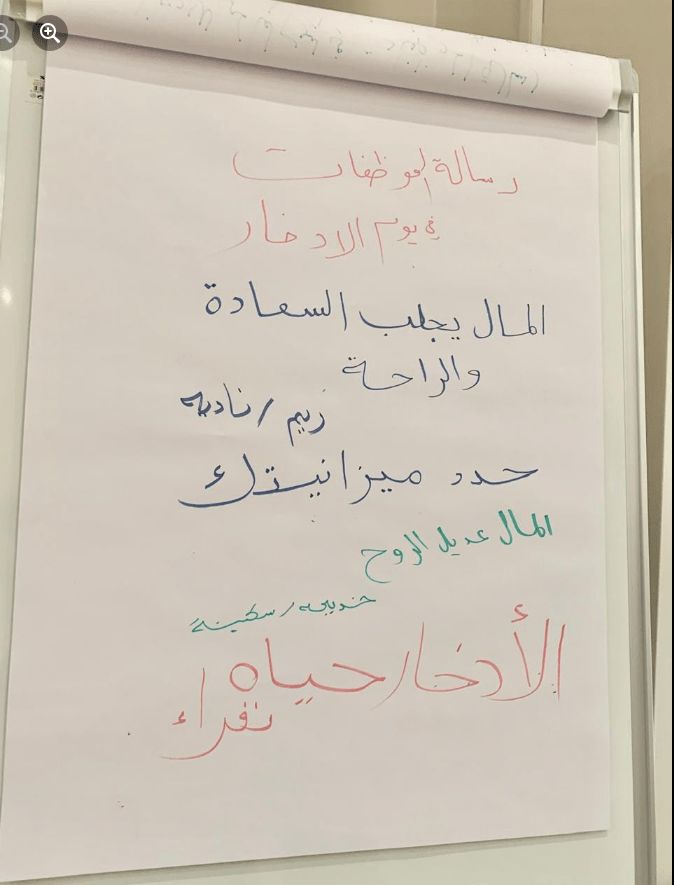 رسالة الموظفات
في يوم الادخار
المال يجلب السعادة
والراحة
ريم / ناديه
حدد ميزانيتك
المال عديل الروح
خديجه / سكينة
الأدخار حياه